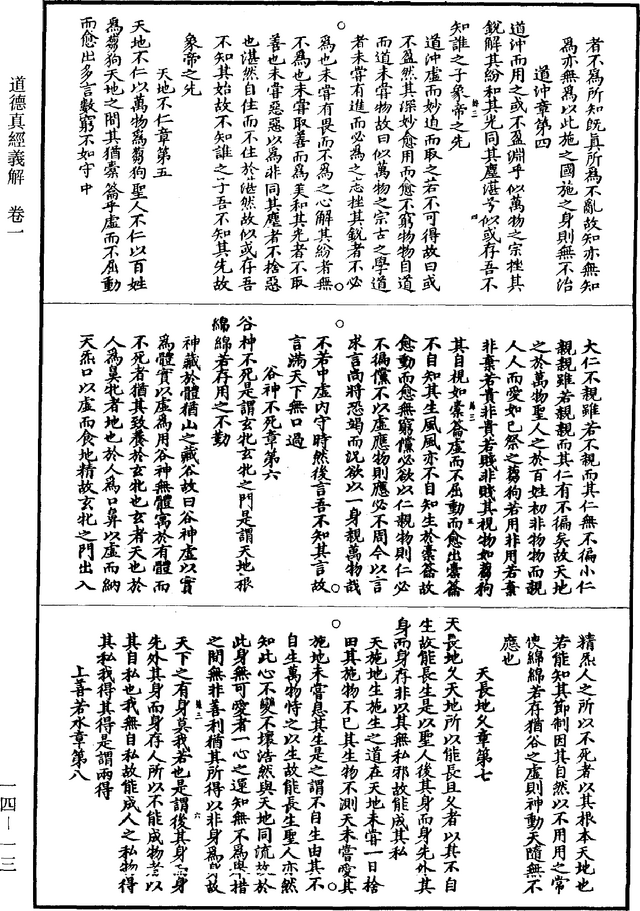 道德真經義解　卷一
者不爲所知旣眞所爲不亂故知亦無知
爲亦無爲以此施之國施之身則無不治
道沖章第四
道沖而用之或不盈淵乎似萬物之宗挫其
銳解其紛和其光同其塵湛兮似或存吾不
知誰之子象帝之先
道沖虛而妙迫而取之若不可得故曰或
不盈然其深妙愈用而愈不窮物物自道
而道未嘗物故曰似萬物之宗古之學道
者未嘗有進而必爲之志挫其銳者不必
爲也未嘗有畏而不爲之心解其紛者無
不爲也未嘗取善而爲美和其光者不取
善也未嘗惡惡以爲非同其塵者不捨惡
也湛然自住而不住於湛然故似或存吾
不知其始故不知誰之子吾不知其先故
象帝之先
天地不仁章第五
天地不仁以萬物爲芻狗聖人不仁以百姓
爲芻狗天地之間其猶橐籥乎虛而不屈動
而愈出多言數窮不如守中
大仁不親雖若不親而其仁無不徧小仁
親親雖若親親而其仁有不徧矣故天地
之於萬物聖人之於百姓初非物物而親
人人而愛如已祭之芻狗若用非用若棄
非棄若貴非貴若賤非賤其視物如芻狗
其自視如橐籥虛而不屈動而愈出橐籥
不自知其生風風亦不自知生於橐籥故
愈動而愈無窮儻必欲以仁親物則仁必
不徧儻不以虛應物則應必不周今以言
求言尚將恐竭而況欲以一身親萬物哉
不若中虛內守時然後言吾不知其言故
言滿天下無口過
谷神不死章第六
谷神不死是謂玄牝玄牝之門是謂天地根
綿綿若存用之不勤
神藏於體猶山之藏谷故曰谷神虛以實
爲體實以虛爲用谷神無體寓於有體而
不死者猶其致養於玄牝也玄者天也於
人爲鼻牝者地也於人爲口鼻以虛而納
天炁口以虛而食地精故玄牝之門出入
精炁人之所以不死者以其根本天地也
若能知其節制因其自然以不用用之常
使綿綿若存猶谷之虛則神動天隨無不
應也
天長地久章第七
天長地久天地所以能長且久者以其不自
生故能長生是以聖人後其身而身先外其
身而身存非以其無私邪故能成其私
天施地生施生之道在天地未嘗一日捨
田其施物不已其生物不測天未嘗愛其
施地未嘗息其生是之謂不自生由其不
自生萬物恃之以生故能長生聖人亦然
知此心不變不壞浩然與天地同流故於
此身無可愛者一心之運知無不爲舉措
之間無非善利猶其所得以非身爲身故
天下之有身莫我若也是謂後其身而身
先外其身而身存人所以不能成物者以
其自私也我無自私故能成人之私物得
其私我得其得是謂兩得
上善若水章第八
一四—一三